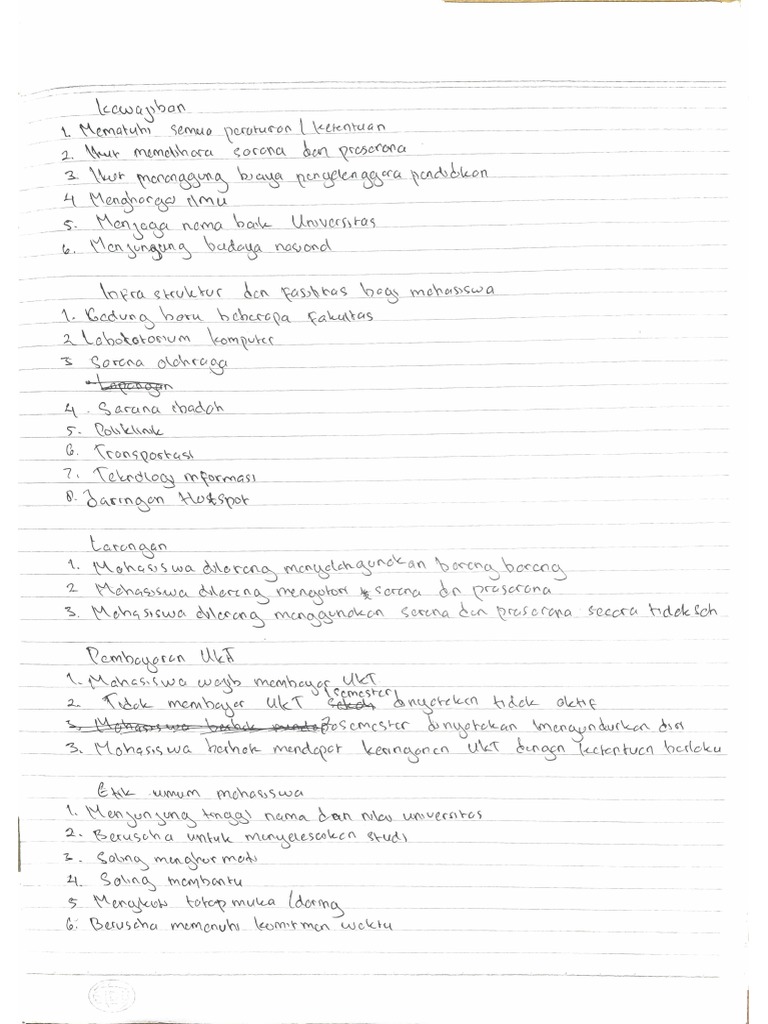 Kewajiban
1. Mematuhi semua peraturan / ketentuan
2. Ikut memelihara sarana dan prasarana
3. Ikut menanggung biaya penyelenggara pendidikan
4 Menghargai ilmu
5. Menjaga nama baik Universitas
6. Menjungung budaya nasional
Infra struktur dan fasilitas bagi mahasiswa
1. Gedung baru beberapa Fakultas
2 Labototorium komputer
3 Sarana olahraga
Lapangan
4. Sarana ibadah
5. Poliklinik
6. Transportasi
7. Teknologi informasi
8. Jaringan Hotspot
Larangan
1. Mahasiswa dilarang menyalahgunakan barang barang
2 Mahasiswa dilarang mengotori sarana dn prasarana
3. Mahasiswa dilarang menggunakan sarana dan prasarana secara tidak sah
Pembayaran UKT
1. Mahasiswa wajib membayar UKT
2. Tidak membayar UKT 1 semester dinyatakan tidak aktif
3. Mahasiswa berhak 2 semester dinyatakan mengundurkan diri
3. Mahasiswa berhak mendapat keringanan UKT dengan ketentuan berlaku
Etik umum mahasiswa
1. Menjunjung tinggi nama dan nilai universitas
2. Berusaha untuk menyelesaikan studi
3. Saling menghormati
4. Saling membantu
5 Mengikuti tatap muka / daring
6. Berusaha memenuhi komitmen waktu